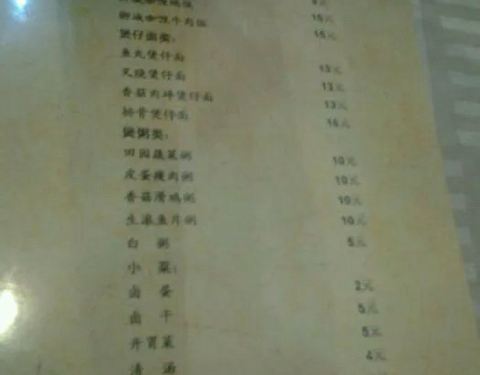 15元
煲仔面类:
鱼丸煲仔面 13元
叉烧煲仔面 13元
香菇肉碎煲仔面 13元
排骨煲仔面 16元
煲粥类:
田园蔬菜粥 10元
皮蛋瘦肉粥 10元
香菇滑鸡粥 10元
生滚鱼片粥 10元
白 粥 5元
小 菜:
卤 蛋 2元
卤 干 5元
开胃菜 5元
清 汤 4元